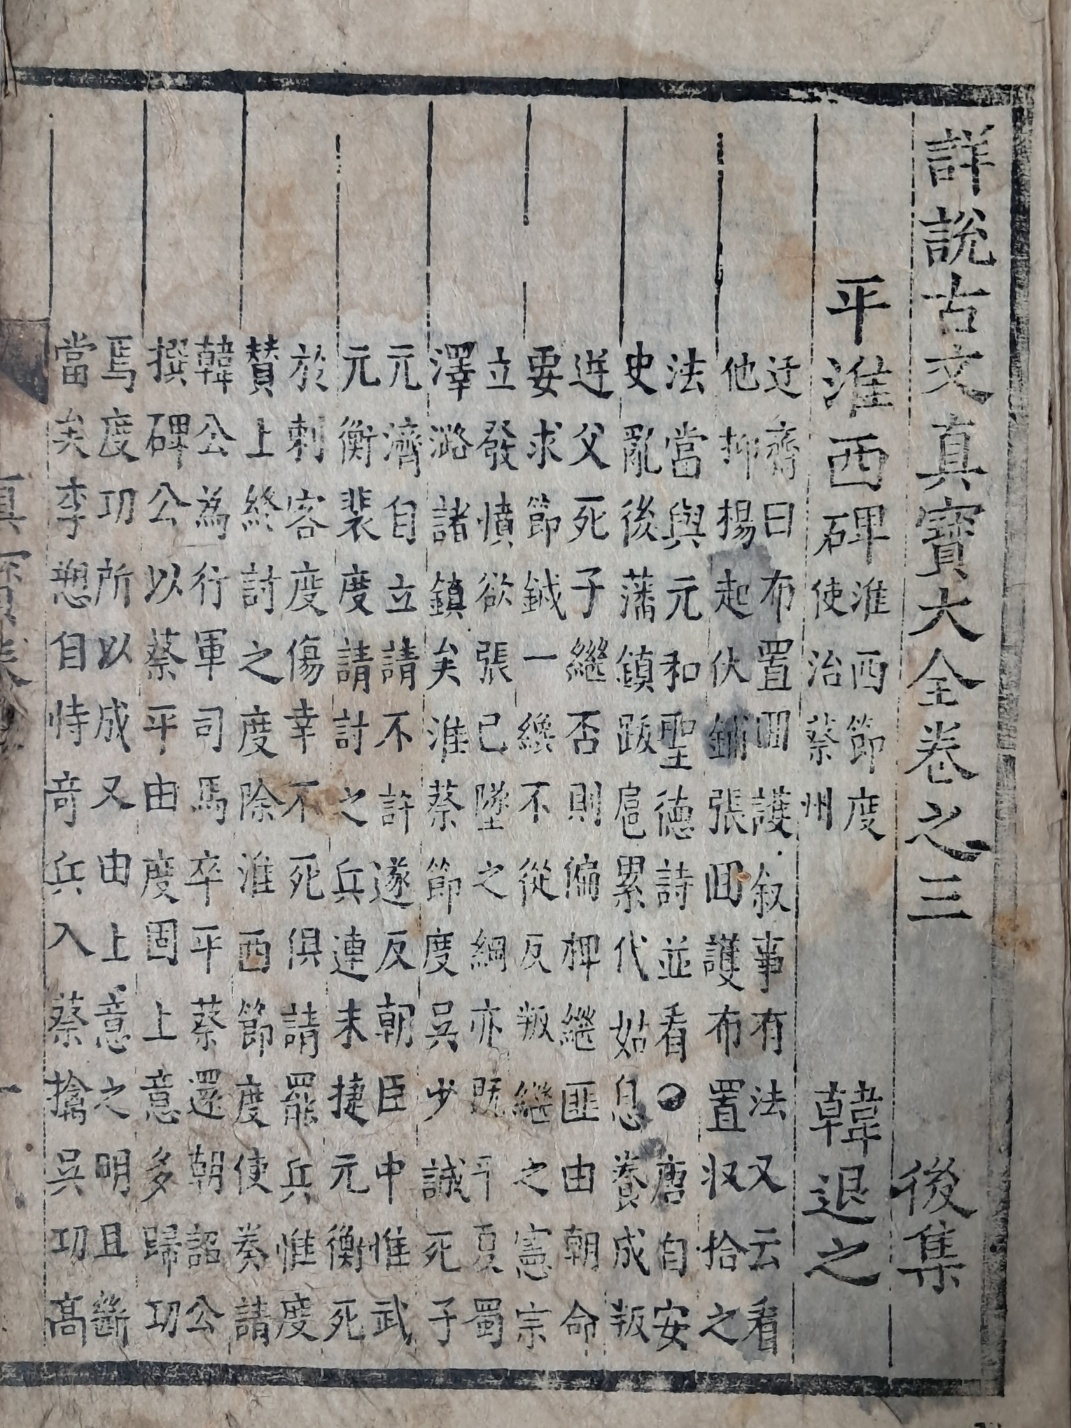 詳說古文真寶大全卷之三 後集
平淮西碑 淮西節度使治蔡州 韓退之
迂齋曰布置回護叙事有法又云看
他抑揚起伏鋪張回護布置収拾之
法當與元和聖德詩並看●唐自安
史亂後藩鎮跋扈累代姑息養成叛
逆父死子繼否則偏裨繼匪由朝命
要求節鉞一緩不從反叛繼之憲宗
立發憤欲張已墜之綱亦旣平夏蜀
澤潞諸鎮矣淮蔡節度吳少誠死子
元濟自立請不許遂反朝臣中惟武
元衡裴度請討之兵連未捷元衡死
於刺客度傷幸不死俱請罷兵惟度
賛上終討之度除淮西節度使奏請
韓公為行軍司馬卒平蔡還朝詔公
撰碑公以蔡平由度固上意多歸功
焉度功所以成又由上意之明且斷
當矣李愬自恃竒兵入蔡擒吳功高